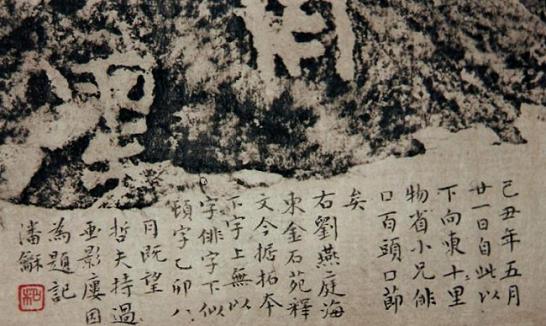 己丑年五月
廿一日自此以
下向東十里
物省小兄俳
口百頭口節
矣
右劉燕庭海
東金石苑釋
文今據拓本
下字上無以
字俳字下似
字己卯八
月既望
哲夫持過
影廔因
為題記
潘龢